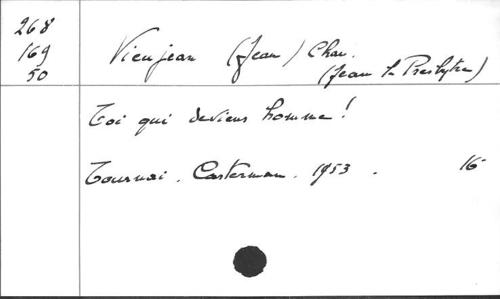 268
169
50
Vieujean (Jean) Chan.
(Jean le Presbytre)
Toi qui deviens homme!
Tournai. Casterman. 1953. 16°